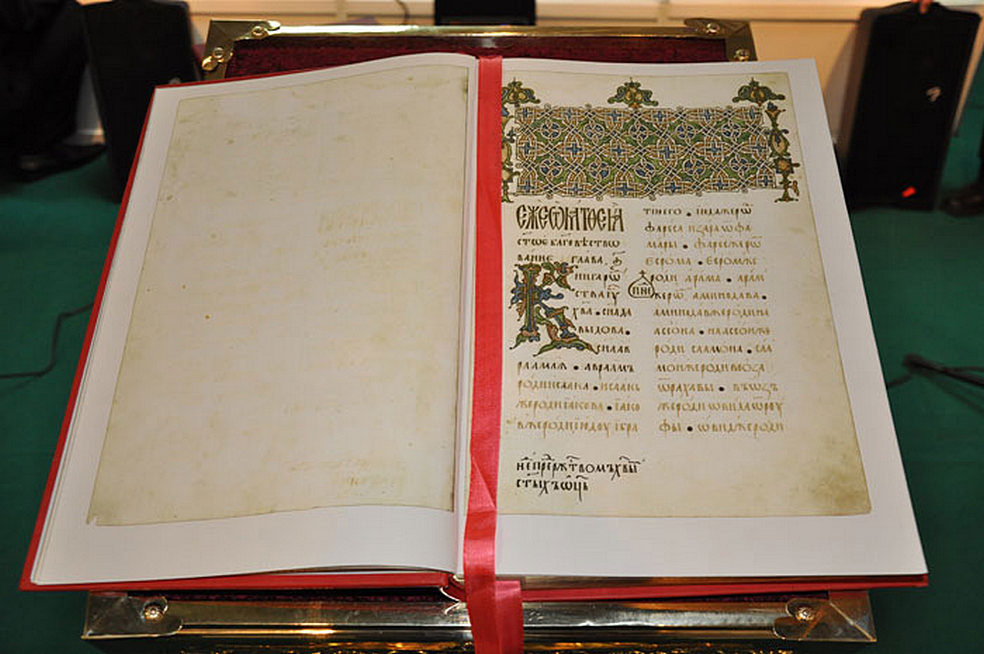 ЄЖЕѠМАТѲЕА
стоє бл҃говѣство
ваниє глава, а҃
Книгарѡⷣ
ства іу҃
х҃ва • сн҃ада
выдова •
сн҃аав
раамлѧ • авраамъ
родиисаака • исаакь
жеродиіакова • іако
вжеродиіюдоу ібра
тїиего • іюдажерѡⷣ
фареса изараѡфа
мары • фаресжерѡⷣ
єсрома • єсромже
роди арама • арам
жерѡⷣ аминодава •
аминодавжеродина
ассона • наассонже
роди салмона • сал
монжеродивооза
ѿрахавы •
жеродиѡвидаѿроу
фы • ѡвиджероди
неⷣ прерⷤⷣтвомъхв҃ыⷨ
ст҃ыхъѿц҃ь